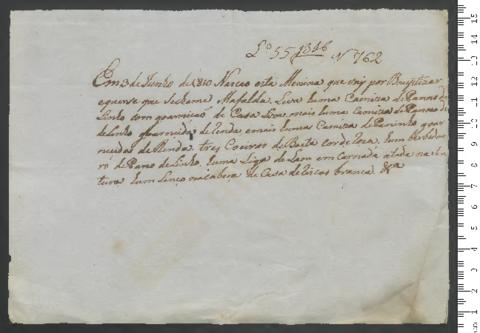 Lº 55 1346
Nº 762
Em 3 de Junho de 1810 Nasceo esta Menina que vaj por Bauptizar
equerse que sechame Mafalda Leva huma Camiza de Panno de
Linho com goarniçaõ de Casa Leva mais huma Camiza de Panno de
Linho goarnecida de Renda e mais huma Camiza de Paninho goar
necida de Renda tres Coeiros de Baeta cor de Roza hum
de Pano de Linho huma Liga de Lam em Carnada atada na Sin
tura hum Lenço na Cabeça de Casa de Riscas branca &ª